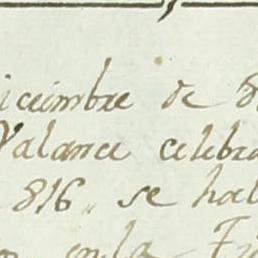 iciembre de 8
Valance celebra
816,, se hal
en la